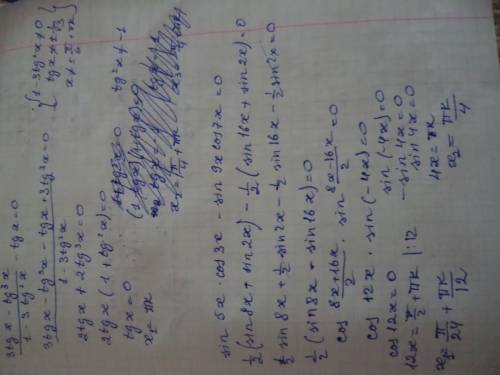 \frac{3tgx - tg^3x}{1 - 3tg^2x} - tgx = 0
\frac{3tgx - tg^3x - tgx + 3tg^3x = 0}{1 - 3tg^2x}
{1 - 3tg^2x ≠ 0
tgx ≠ ± \frac{1}{\sqrt{3}}
x ≠ ± \frac{π}{6} + πk}
2tgx + 2tg^3x = 0
2tgx (1 + tg^2x) = 0
tgx = 0 tg^2x ≠ -1
x_1 = πk
sin 5x · cos 3x - sin 9x cos 7x = 0
\frac{1}{2}(sin 8x + sin 2x) - \frac{1}{2}(sin 16x + sin 2x) = 0
\frac{1}{2} sin 8x + \frac{1}{2} sin 2x - \frac{1}{2} sin 16x - \frac{1}{2} sin 2x = 0
\frac{1}{2}(sin 8x - sin 16x) = 0
cos \frac{8x + 16x}{2} · sin \frac{8x - 16x}{2} = 0
cos 12x · sin (-4x) = 0
cos 12x = 0 sin (-4x) = 0
12x = \frac{π}{2} + πk |:12 - sin 4x = 0
sin 4x = 0
x_1 = \frac{π}{24} + \frac{πk}{12} 4x = πk
x_2 = \frac{πk}{4}